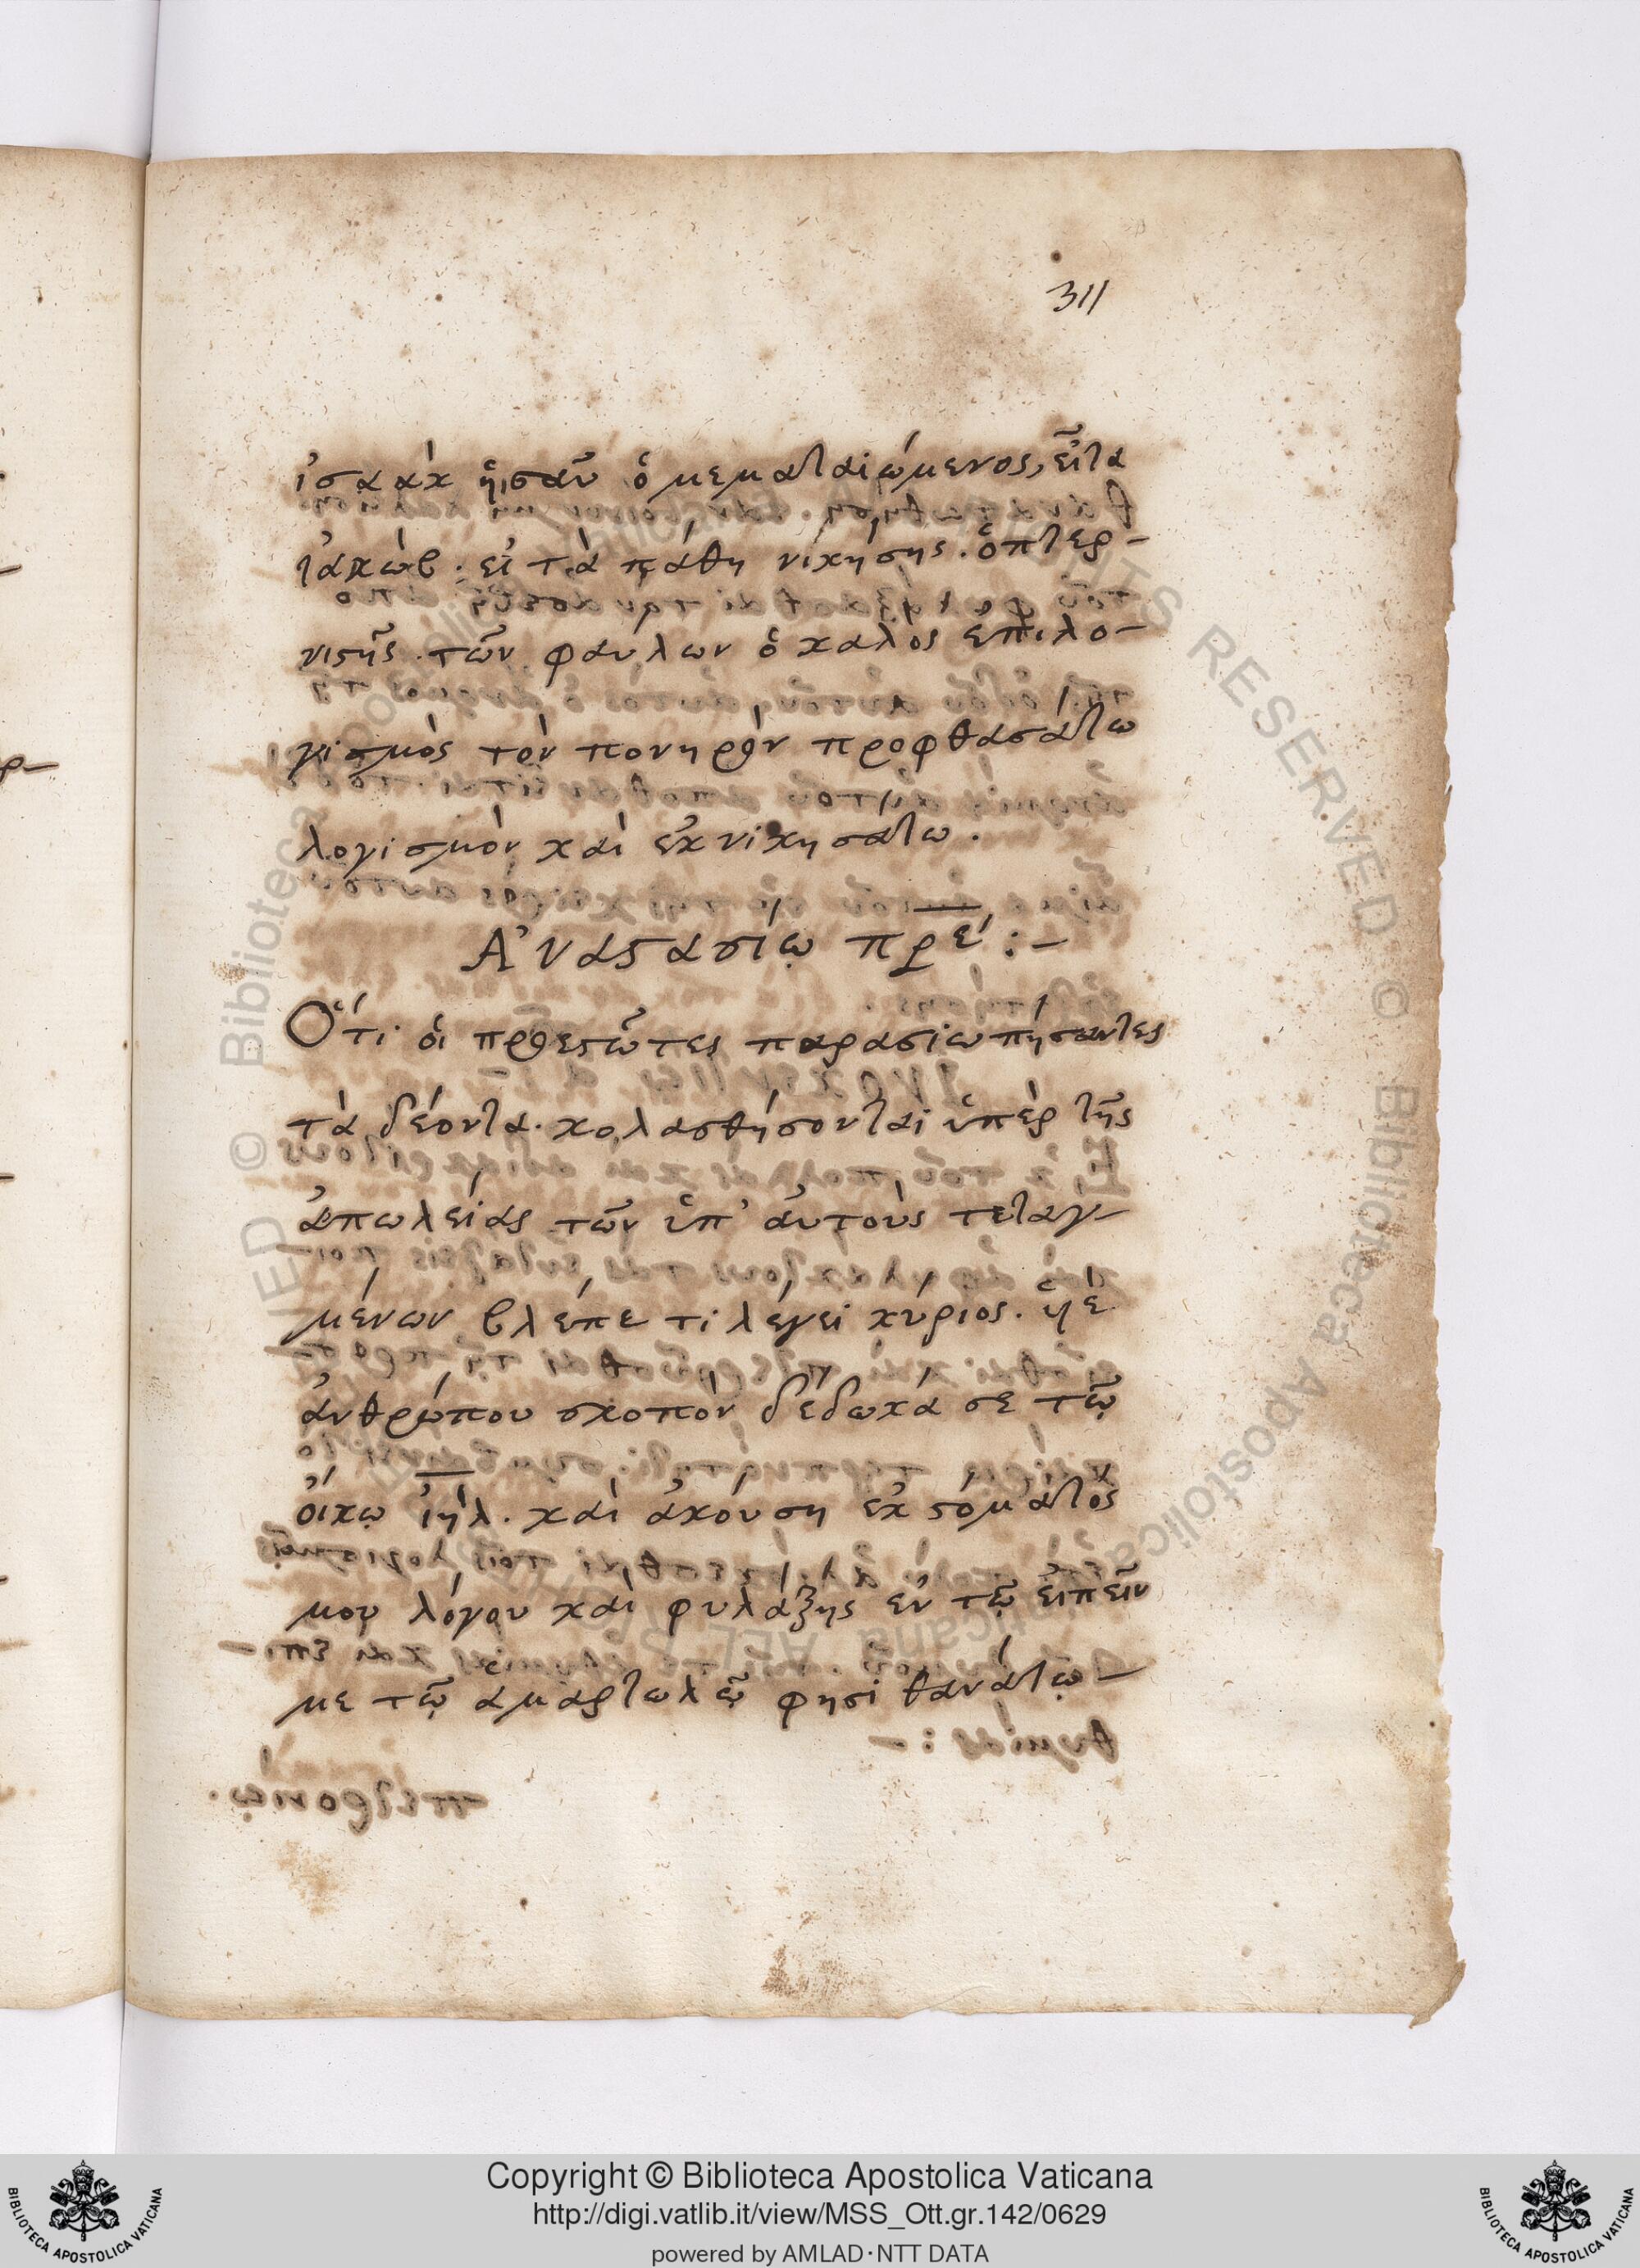 311
ἰσαὰκ ἢ ἠσαῦ ὁ μεματαιώμενος, εἶτα
ἰακὼβ· εἰ τὰ πάθη νικήσης. ὁ πτερ-
νιστὴς τῶν φαύλων ὁ καλὸς ἐπιλο-
γισμὸς τὸν πονηρὸν προφθασάτω
λογισμὸν καὶ ἐκνικησάτω.
Ἀναστασίῳ πρε´ :-
Ὅτι οἱ προεστῶτες παρασιωπήσαντες
τὰ δέοντα. κολασθήσονται ὑπὲρ τῆς
ἀπωλείας τῶν ὑπ' αὐτοὺς τεταγ-
μένων βλέπε τι λέγει κύριος. υἱὲ
ἀνθρώπου σκοπὸν δέδωκά σε τῷ
οἴκῳ ἰηλ. καὶ ἀκούση ἐκ στόματός
μου λόγου καὶ φυλάξης ἐν τῷ εἰπεῖν
με τῷ ἁμαρτωλῷ φησὶ θανάτῳ-
Copyright © Biblioteca Apostolica Vaticana
http://digi.vatlib.it/view/MSS_Ott.gr.142/0629
powered by AMLAD·NTT DATA
BIBLIOTECA APOSTOLICA VATICANA
BIBLIOTECA APOSTOLICA VATICANA